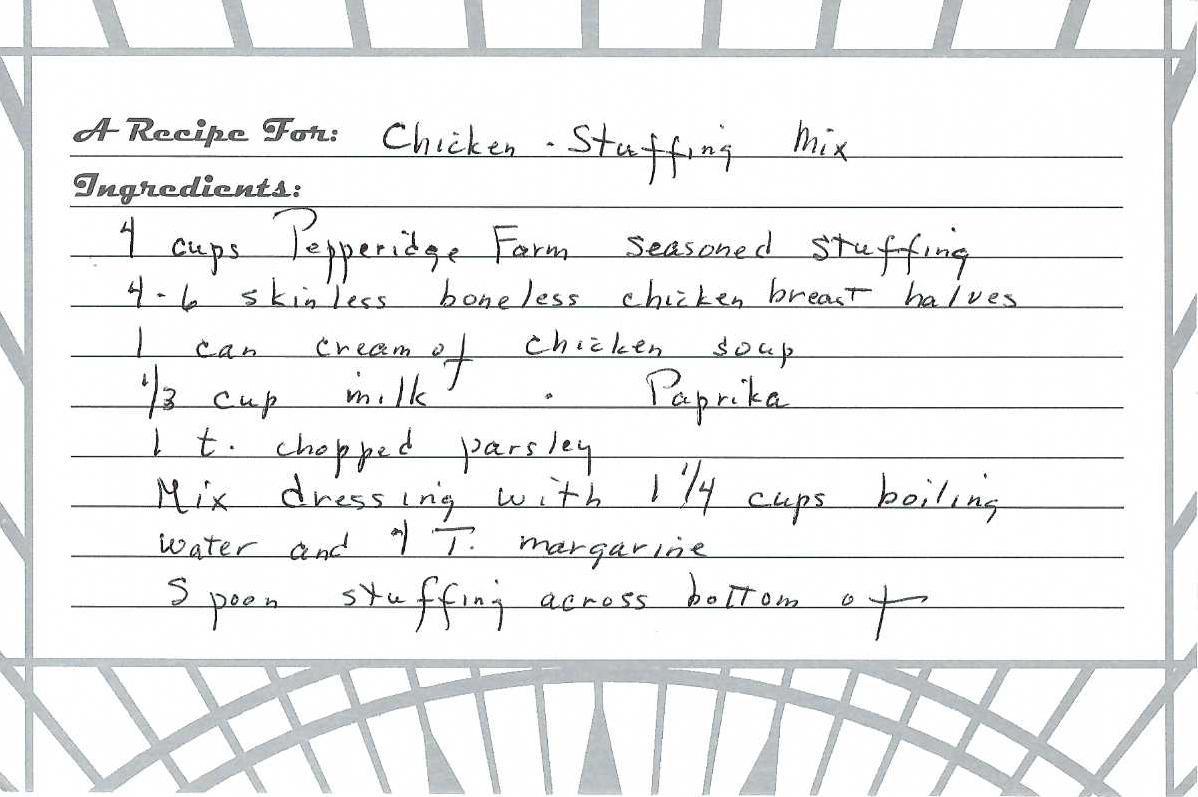 A Recipe For: Chicken - Stuffing Mix
Ingredients:
4 cups Pepperidge Farm seasoned stuffing
4-6 skinless boneless chicken breast halves
1 can cream of chicken soup
1/3 cup milk . Paprika
1 t. chopped parsley
Mix dressing with 1 1/4 cups boiling
water and 4 T. margarine
Spoon stuffing across bottom of